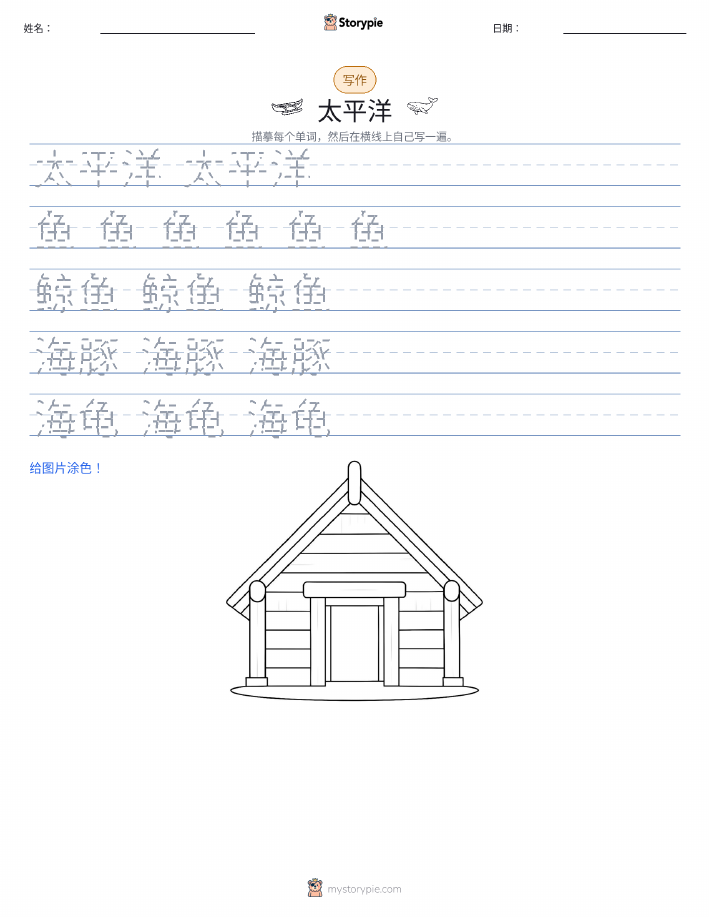 姓名：
Storypie
日期：
写作
太平洋
描摹每个单词，然后在横线上自己写一遍。
太平洋 太平洋
鱼 鱼 鱼 鱼 鱼 鱼
鲸鱼 鲸鱼 鲸鱼
海豚 海豚 海豚
海龟 海龟 海龟
给图片涂色！
mystorypie.com